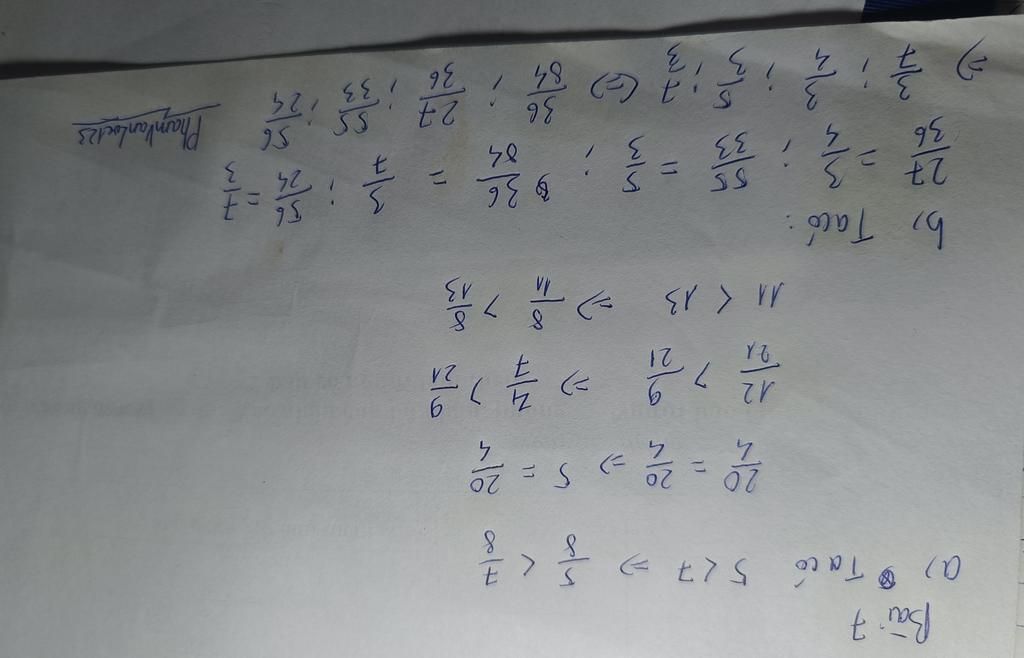 Bài 7
a) Ta có 5 < 7 => 5/8 < 7/8
20/4 = 20/4 => 5 = 20/4
12/21 > 9/21 => 4/7 > 9/21
11 < 13 => 8/11 > 8/13
b, Ta có:
27/36 = 3/4 ; 55/33 = 5/3 ; 36/84 = 3/7 ; 56/24 = 7/3
=> 3/7 ; 3/4 ; 5/3 ; 7/3 (=) 36/84 ; 27/36 ; 55/33 ; 56/24
Phamvanloc123